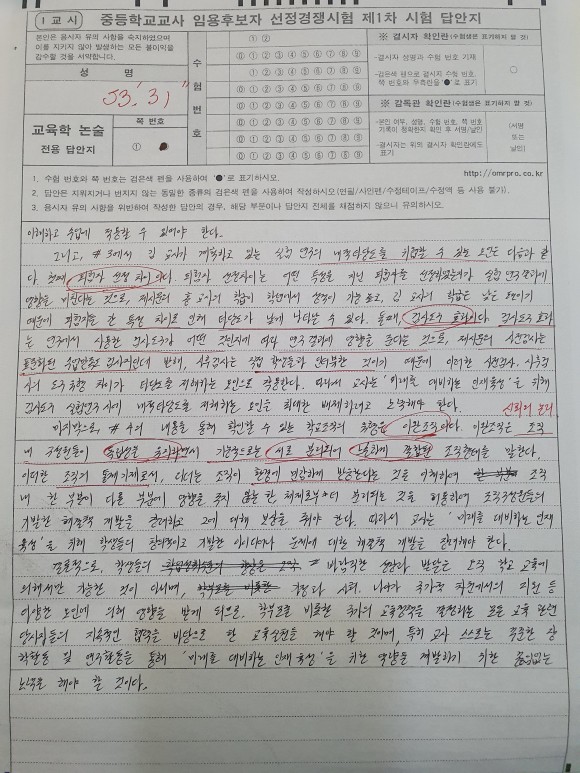 1 교시
중등학교교사 임용후보자 선정경쟁시험 제1차 시험 답안지
본인은 응시자 유의 사항을 숙지하였으며
이를 지키지 않아 발생하는 모든 불이익을
감수할 것을 서약합니다.
성 명
53' 31"
교육학 논술
전용 답안지
쪽 번호
① ●
수험번호
① ②
⓪ ① ② ③ ④ ⑤ ⑥ ⑦ ⑧ ⑨
※ 결시자 확인란 (수험생은 표기하지 말 것)
-결시자 성명과 수험 번호 기재
-검은색 펜으로 결시자 수험 번호,
쪽 번호와 우측란을 '●'로 표기
※ 감독관 확인란 (수험생은 표기하지 말 것)
-본인 여부, 성명, 수험 번호, 쪽 번호
기록이 정확한지 확인 후 서명/날인
-결시자는 위의 결시자 확인란에도
표기
(서명
또는
날인)
http://omrpro.co.kr
1. 수험 번호와 쪽 번호는 검은색 펜을 사용하여 '●'로 표기하시오.
2. 답안은 지워지거나 번지지 않는 동일한 종류의 검은색 펜을 사용하여 작성하시오(연필/사인펜/수정테이프/수정액 등 사용 불가).
3. 응시자 유의 사항을 위반하여 작성한 답안의 경우, 해당 부분이나 답안지 전체를 채점하지 않으니 유의하시오.
이해하고 수업에 적용할 수 있어야 한다.
그리고, #3에서 김 교사가 계획하고 있는 실험 연구의 내적타당도를 위협할 수 있는 요인은 다음과 같
다. 첫째, 피험자 선정 차이이다. 피험자 선정차이는 어떤 특성을 지닌 피험자를 선정하였는가가 실험 연구결과에
영향을 미친다는 것으로, 제시문의 홍 교사의 학급이 학년에서 성적이 가장 높고, 김 교사의 학급은 낮은
때문에 피험자들 간 특성 차이로 인해 타당도가 낮게 나타날 수 있다. 둘째, 검사도구 효과이다. 검사도구 효과
는 연구에서 사용한 검사도구가 어떤 것인지에 따라 연구 결과에 영향을 준다는 것으로, 제시문의 사전검사는
표준화된 수업만족도 검사지인데 반해, 사후검사는 직접 학생들과 인터뷰한 것이기 때문에 이러한 사전검사, 사후검
사의 도구 특성 차이가 타당도를 저해하는 요인으로 작용한다. 따라서 교사는 '미래를 대비하는 인재육성'을 위해
검사도구 실험연구 시에 내적타당도를 저해하는 요인을 최대한 배제하려고 노력해야 한다.
신뢰의 논리
마지막으로, #4의 내용을 통해 확인할 수 있는 학교조직의 유형은 이완조직이다. 이완조직은 조직
내 구성원들이 독립성을 유지하면서 기본적으로는 서로 분리되어 느슨하게 결합된 조직형태를 말한다.
이러한 조직의 통제기제로서, 리더는 조직이 환경에 민감하게 반응한다는 것을 이해하여 조직
내 한 부분이 다른 부분에 영향을 주지 않는 한 체제로부터 분리되는 것을 허용하여 조직구성원들의
기발한 해결책 개발을 격려하고 그에 대해 보상을 줘야 한다. 따라서 교사는 '미래를 대비하는 인재
육성'을 위해 학생들의 창의적이고 기발한 아이디어나 문제에 대한 해결책 개발을 장려해야 한다.
결론적으로, 학생들의 바람직한 성장과 발달은 오직 학교 교육에
의해서만 가능한 것이 아니며, 가정과 사회, 나아가 국가적 차원에서의 지원 등
다양한 요인에 의해 영향을 받게 되므로, 학부모를 비롯한 국가의 교육정책을 결정하는 모든 교육 관련
당사자들의 지속적인 협력을 바탕으로 한 교육실천을 해야 할 것이며, 특히 교사 스스로는 꾸준한 장
학활동 및 연구활동을 통해 '미래를 대비하는 인재육성'을 위한 역량을 계발하기 위한 끊임없는
노력을 해야 할 것이다.